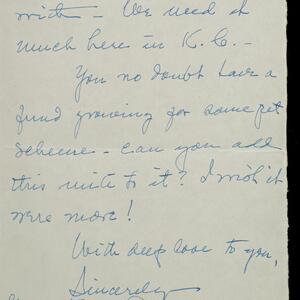 with – We need it
much here in K.C. –
You no doubt have a
fund growing for some pet
scheme – can you add
this mite to it? I wish it
were more!
With deep love to you,
Sincerely